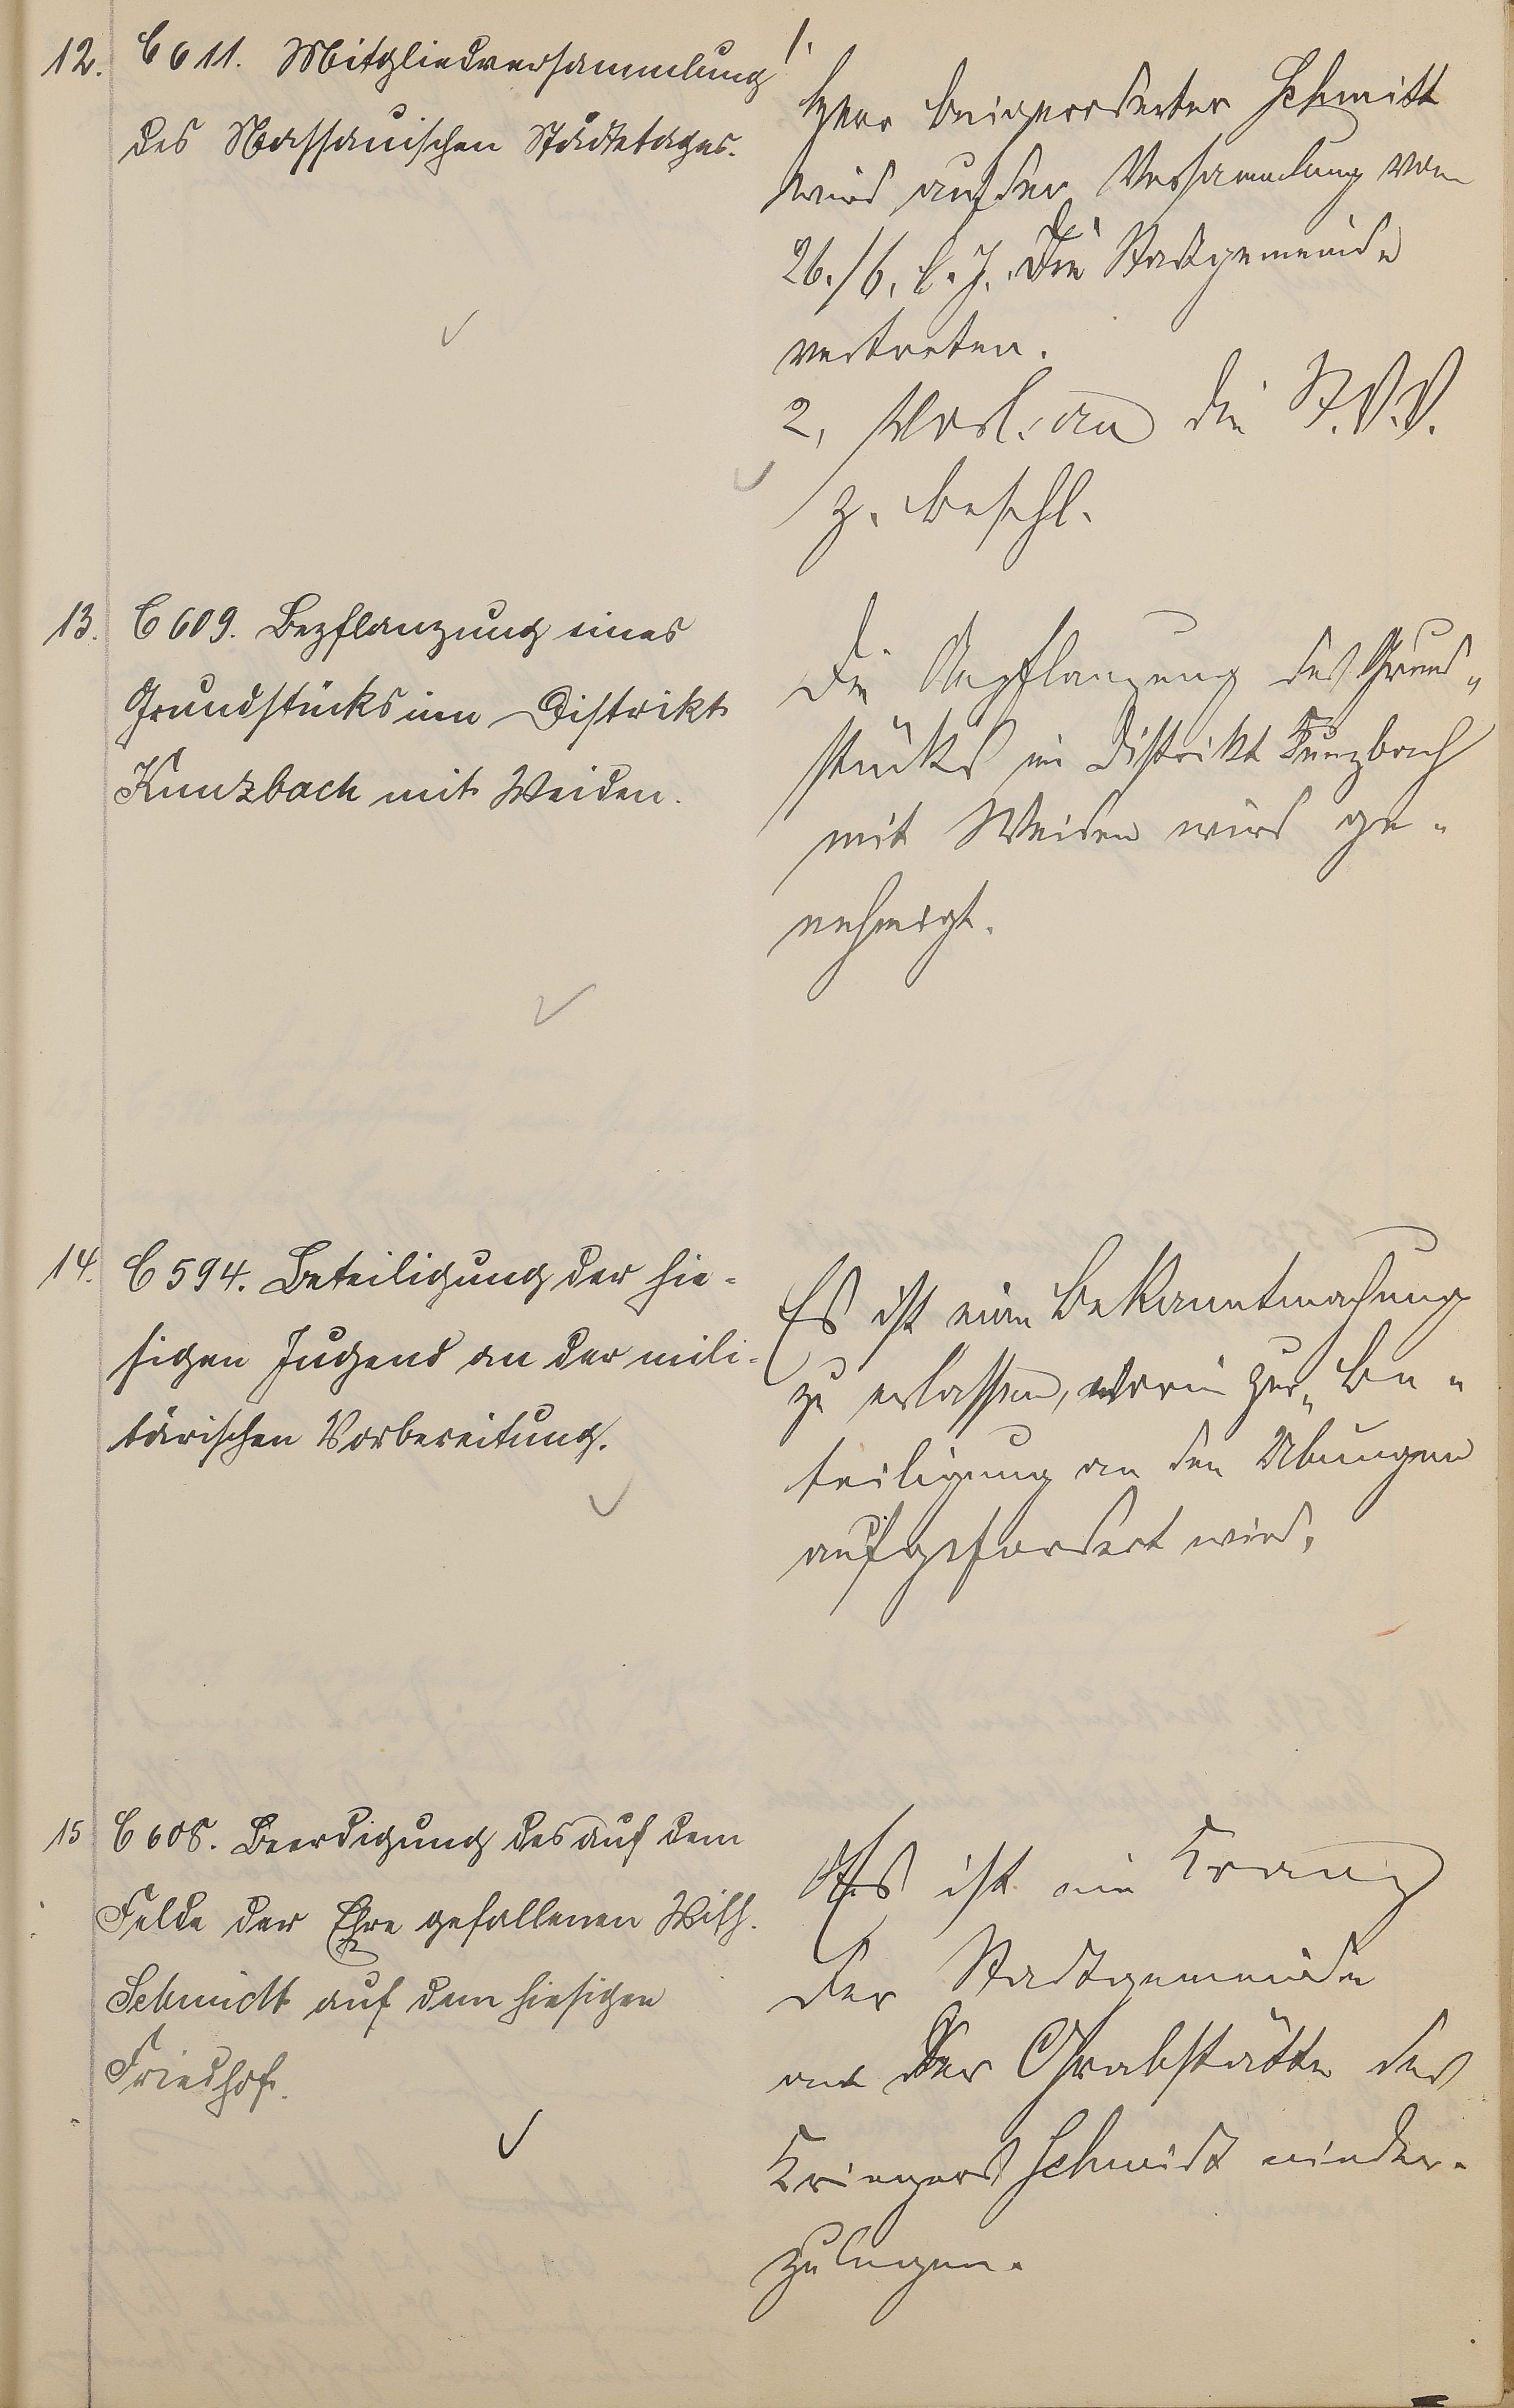 12. C 611. Mitgliedversammlung
des Nassauischen Städtetages.
1.
Herr Beigeordneter Schmitt
wird auf der Versammlung vom
26./6. l. J. die Stadtgemeinde
vertreten.
2, Vorl. an die St.V.V.
z. Beschl.
13. C 609. Bepflanzung eines
Grundstücks im Distrikt
Kunzbach mit Weiden.
Die Anpflanzung des Grund-
stücks im Distrikt Kunzbach
mit Weiden wird ge-
nehmigt.
14. C 594. Beteiligung der hie-
sigen Jugend an der mili-
tärischen Vorbereitung.
Es ist eine Bekanntmachung
zu erlassen, worin zur Be-
teiligung an den Übungen
aufgefordert wird.
15 C 608. Beerdigung des auf dem
Felde der Ehre gefallenen Wilh.
Schmidt auf dem hiesigen
Friedhof.
Es ist ein Kranz
der Stadtgemeinde
an der Grabstätte des
Kriegers Schmidt nieder-
zulegen.